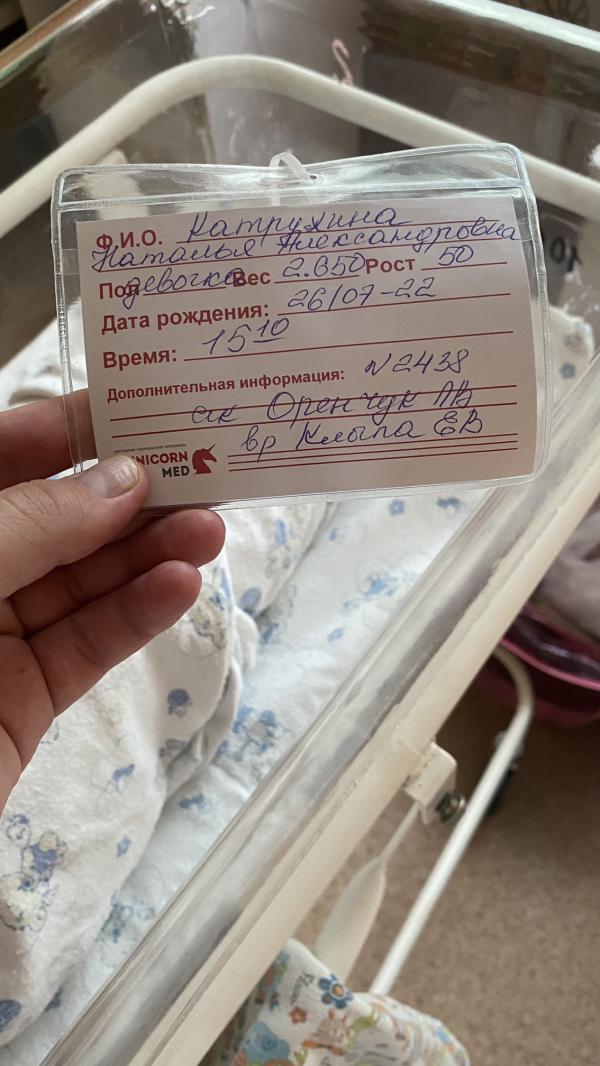 Ф.И.О. Катрухина
Наталья Александровна
Пол девочка Вес 2.850 Рост 50
Дата рождения: 26/07-22
Время: 15 10
Дополнительная информация: N2438
ак Оренчук ЛВ
UNICORN MED
вр Клыпа ЕВ